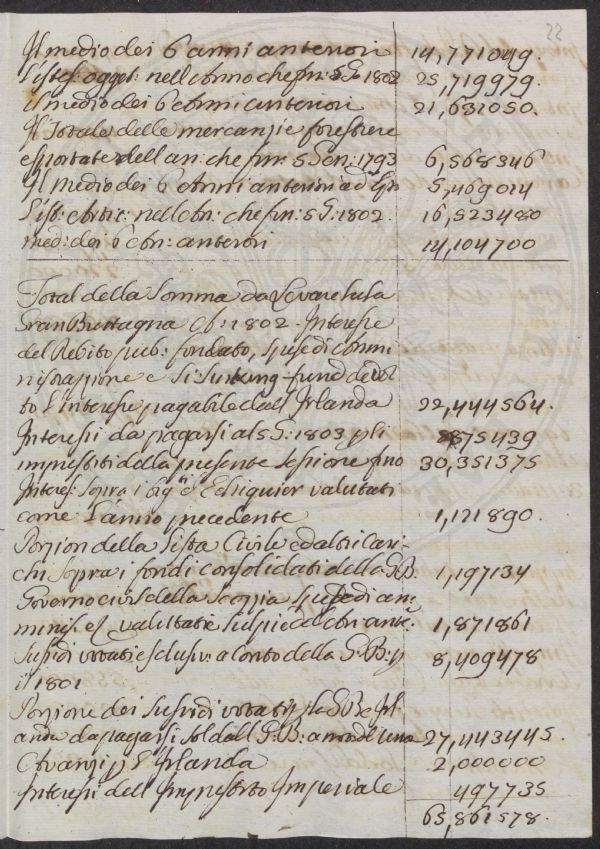 22
Il medio dei 6 anni anteriori 14,771049.
L'istes: ogget: nell'Anno che fin: 5 G. 1802 25,719979.
il medio dei 6 Anni anteriori 21,631050.
Il Totale delle mercanzie forestiere
esportate dell'an: che fin: 5 Gen: 1793 6,568346
Il medio dei 6 Anni anteriori ad 5,469014
L'ist: nell'An: che fin: 5 G: 1802. 16,523480
med: dei 6 An: anteriori 14,104700
Total della Somma da Levare sula
Gran Brettagna 1802. Interesse
del Debito pub: fondato, spese di Ammi
nistrazione e Si: Sinking fund dedot
to l'interesse pagabile dall'Irlanda 22,444564.
Interessi da pagarsi al 5 G: 1803 p gli 875439
imprestiti della presente Sessione fino 30,351375
Interes: Sopra i big.ti d'Echiquier valutati
come l'anno precedente 1,121890.
Porzion della Lista Civile ed altri Cari-
chi Sopra i fondi consolidati della G B. 1,197134
Governo civil della Scozia Spese di am
valutati sul piè del ann: ante: 1,871861
Susidi votati esclusiv: a Conto della G. B: p 8,409478
il 1801
Porzione dei Susidi votati p la G B e Irl
anda da pagarsi sol dall'G: B: a 27,443445.
Avanzi p l'Irlanda 2,000000
Interessi dell'Imprestito Imperiale 497735
65,861578.